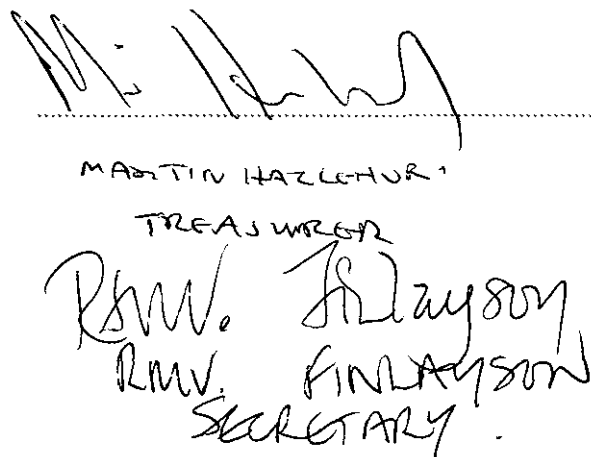 MARTIN HAZLEHUR
TREASURER
RMV. Finlayson
RMV. FINLAYSON
SECRETARY.